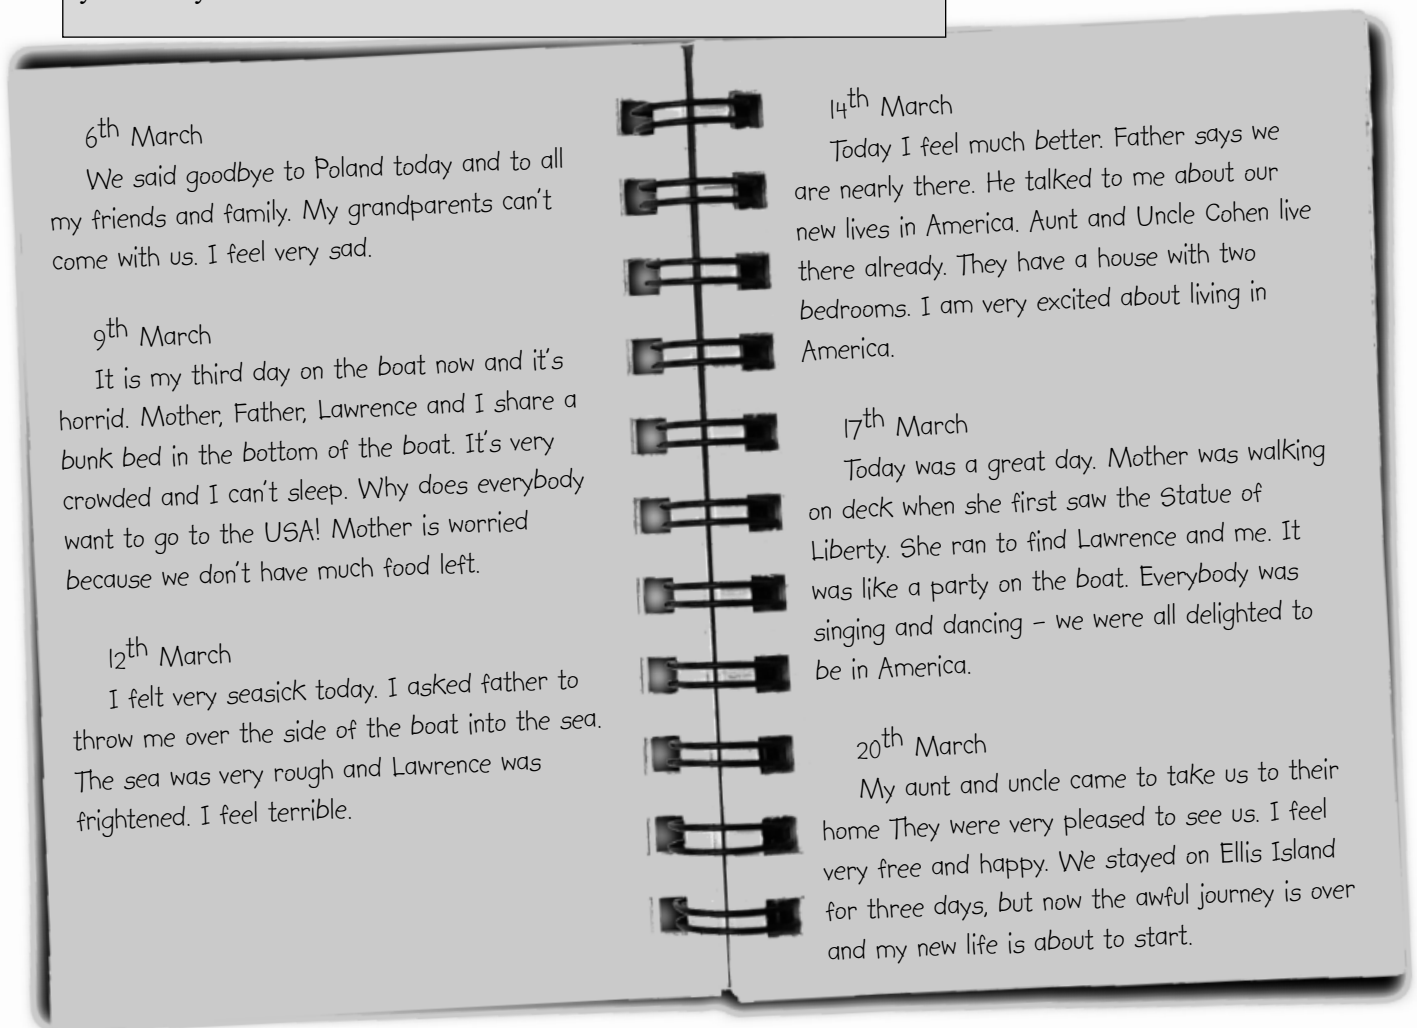 6th March
We said goodbye to Poland today and to all
my friends and family. My grandparents can't
come with us. I feel very sad.
9th March
It is my third day on the boat now and it's
horrid. Mother, Father, Lawrence and I share a
bunk bed in the bottom of the boat. It's very
crowded and I can't sleep. Why does everybody
want to go to the USA! Mother is worried
because we don't have much food left.
12th March
I felt very seasick today. I asked father to
throw me over the side of the boat into the sea.
The sea was very rough and Lawrence was
frightened. I feel terrible.
14th March
Today I feel much better. Father says we
are nearly there. He talked to me about our
new lives in America. Aunt and Uncle Cohen live
there already. They have a house with two
bedrooms. I am very excited about living in
America.
17th March
Today was a great day. Mother was walking
on deck when she first saw the Statue of
Liberty. She ran to find Lawrence and me. It
was like a party on the boat. Everybody was
singing and dancing – we were all delighted to
be in America.
20th March
My aunt and uncle came to take us to their
home They were very pleased to see us. I feel
very free and happy. We stayed on Ellis Island
for three days, but now the awful journey is over
and my new life is about to start.